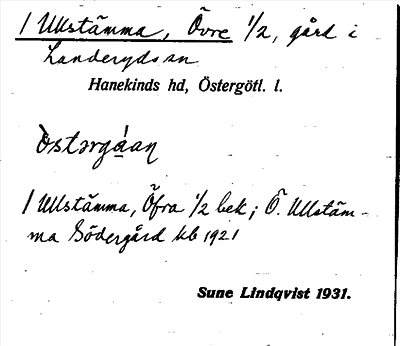 / Ullstämma, Övre 1/2, gård i
Landeryds sn
Hanekinds hd, Östergötl. l.
òstərgá̱an
/ Ullstämma, Öfra 1/2 bek; Ö. Ullstäm-
ma Södergård kb 1921
Sune Lindqvist 1931.